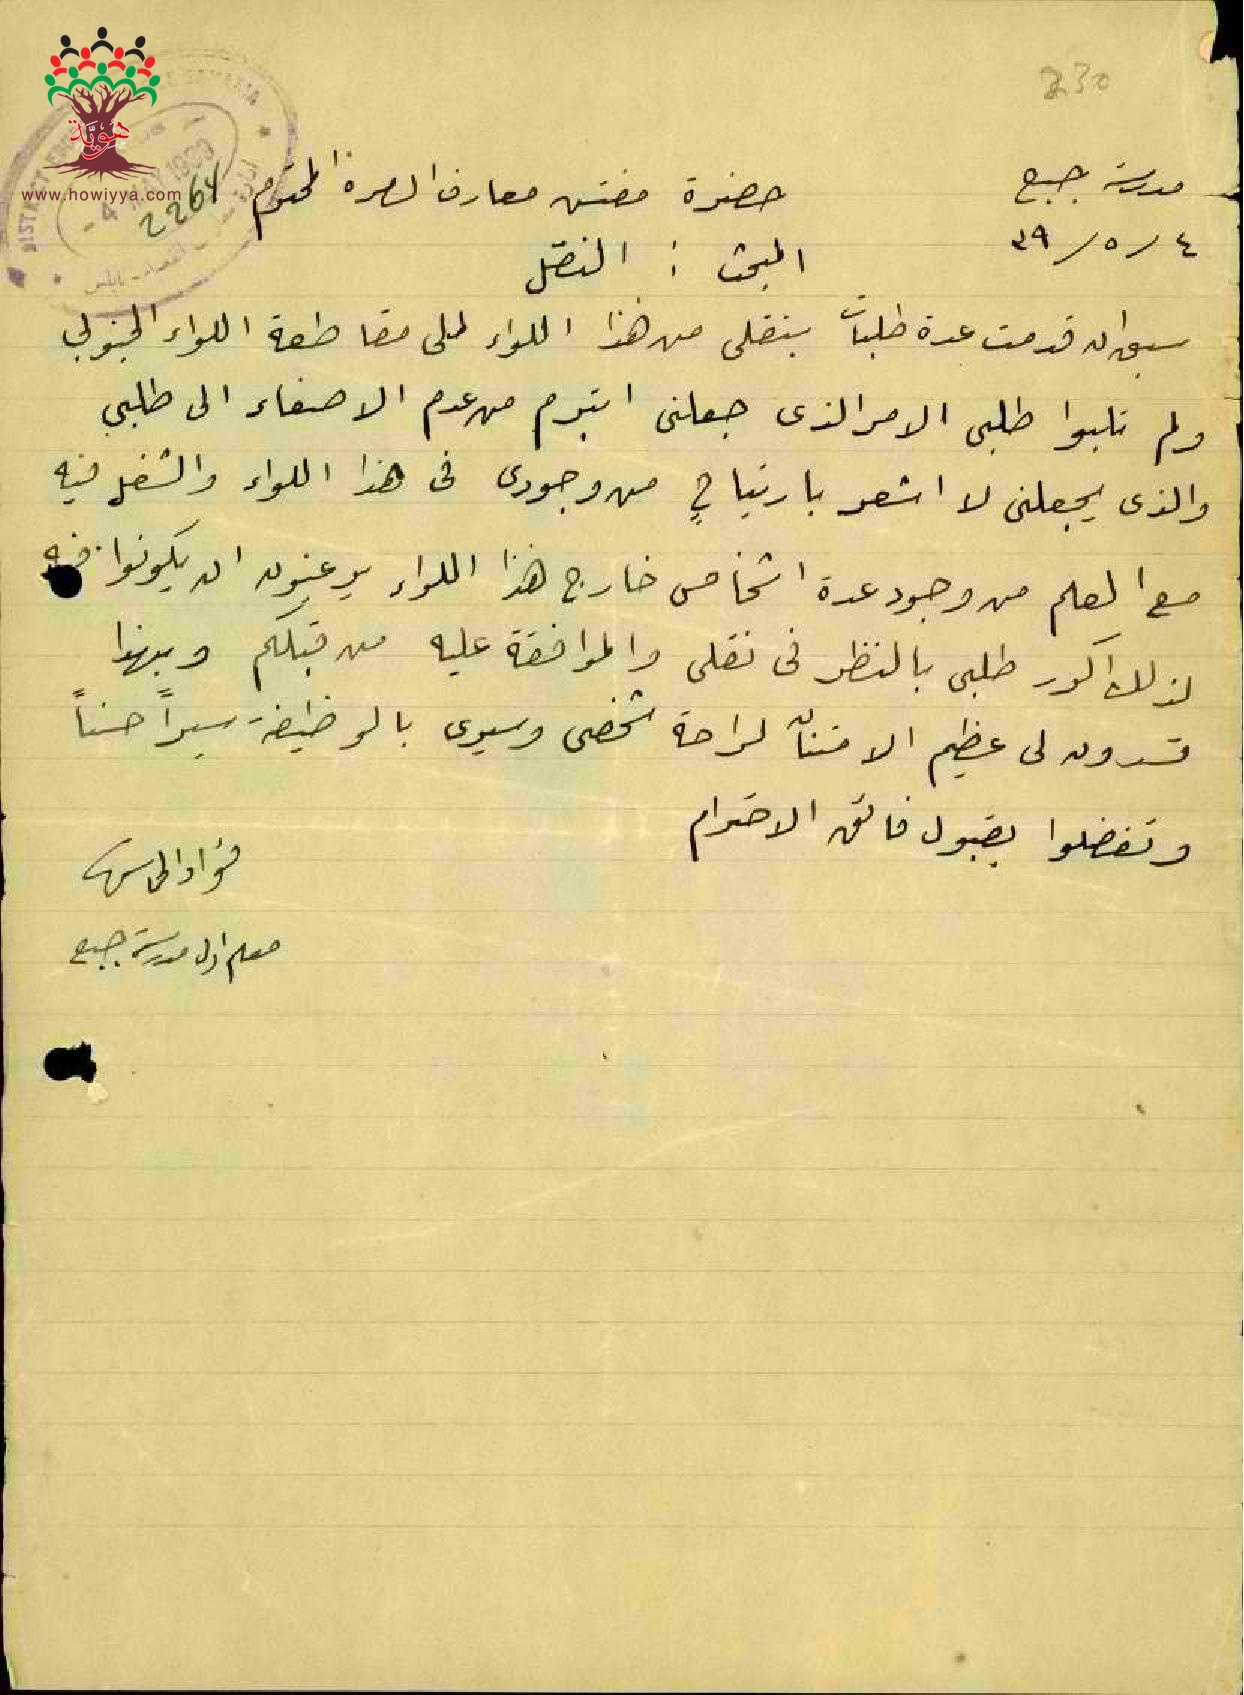 230
هوية
www.howiyya.com
2264
مدرسة جبع
٤ / ٥ / ٣٩
حضرة مفتش معارف السامرة المحترم
المبحث : النقل
سبق ان قدمت عدة طلبات بنقلي من هذا اللواء الى مقاطعة اللواء الجنوبي
ولم تلبوا طلبي الامر الذى جعلنى اتبرم من عدم الاصغاء الى طلبي
والذى يجعلنى لا اشعر بارتياح من وجودى فى هذا اللواء والشغل فيه
مع العلم من وجود عدة اشخاص خارج هذا اللواء يرغبون ان يكونوا فيه
لذلك اكرر طلبى بالنظر فى نقلى والموافقة عليه من قبلكم وبهذا
تسدون لى عظيم الامتنان لراحة شخصى وسيرى بالوظيفة سيراً حسناً
وتفضلوا بقبول فائق الاحترام
فؤاد
معلم اول مدرسة جبع